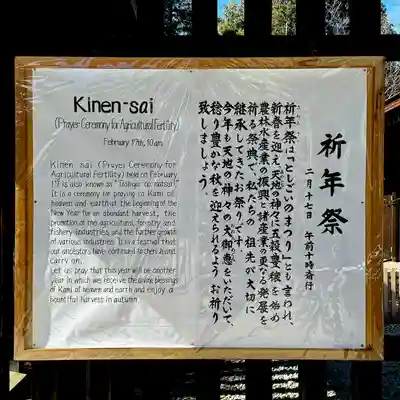 Kinen-sai
(Prayer Ceremony for Agricultural Fertility)
February 17th, 10am
Kinen sai (Prayer Ceremony for
Agricultural Fertility) held on February
17 is also known as "Toshigoi no matsuri".
It is a ceremony for praying to Kami of
heaven and earth at the beginning of the
New Year for an abundant harvest, the
promotion of the agricultural, forestry and
fishery industries, and the further growth
of various industries. It is a festival that
our ancestors have continued to cherish and
carry on.
Let us pray that this year will be another
year in which we receive the divine blessings
of Kami of heaven and earth and enjoy a
bountiful harvest in autumn.
祈年祭
二月十七日 午前十時斎行
祈年祭は「としごいのまつり」とも言われ、
新春を迎え天地の神々に五穀豊穣を始め
農林水産業の振興と諸産業の更なる発展を
祈る祭典で、私たちの祖先が大切に
継承してきたお祭りです。
今年も天地の神々の大御恵をいただいて、
稔り豊かな秋を迎えられるようお祈り
致しましょう。